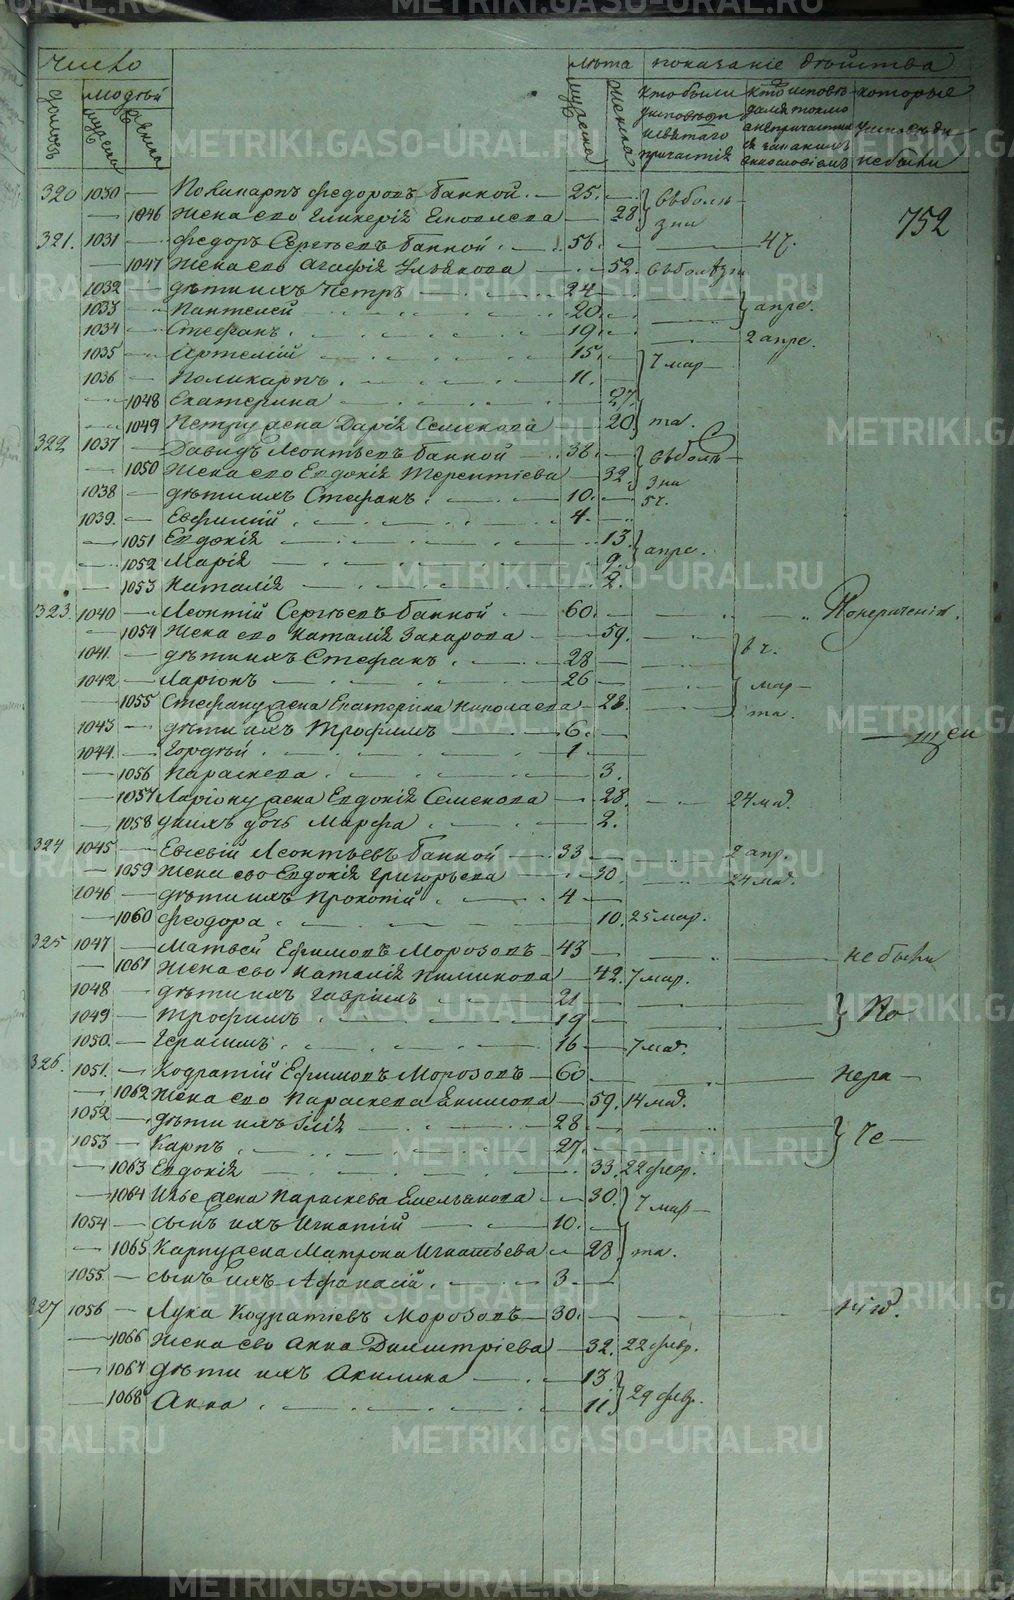 METRIKI.GASO-URAL.RU
число лѣта показаніе дѣйства
домовъ людей мужеска женска мужеска женска
кто были у исповѣди и святаго причастія
кто исповѣдался токмо а не причастился
которые у исповѣди не были
752
320 1030 — Поликарпъ Федоровъ Банной 25. въ болѣ-
— 1046 Жена его Гликерія 28 зни
321. 1031 — Федоръ Сергѣевъ Банной 56. 4 ч.
— 1047 Жена его Агафія 52. въ болѣзни
1032 — дѣти ихъ Петръ 24
1033 — Пантелей 20. апре.
1034 — Стефанъ 19. 2 апре.
1035 — Артемій 15.
1036 — Поликарпъ 11. 7 мар-
— 1048 Екатерина 27.
— 1049 Петру жена Дарія Семенова 20. та.
322 1037 — Давидъ Леонтьевъ Банной 38. въ болѣ-
— 1050 Жена его Евдокія Терентіева 32. зни
1038 — дѣти ихъ Стефанъ 10. 5 ч.
1039. — Евфимій 4.
— 1051 Евдокія 13.
— 1052 Марія 9. апре.
— 1053 Наталія 2.
323. 1040 — Леонтій Сергѣевъ Банной 60.
— 1054 Жена его Наталія Захарова 59.
1041. — дѣти ихъ Стефанъ 28 6 ч.
1042 — Ларіонъ 26 мар-
— 1055 Стефану жена Екатерина Николаева 28. та.
1043 — дѣти ихъ Трофимъ 6.
1044. — Гордѣй 1
— 1056 Параскева 3.
— 1057 Ларіону жена Евдокія Семенова 28. 24 ма.
— 1058 у нихъ дочь Марфа 2.
324 1045 — Евсевій Леонтьевъ Банной 33 2 апр.
— 1059 Жена его Евдокія Григорьева 30. 24 ма.
1046 — дѣти ихъ Прокопій 4
— 1060 Феодора 10. 25 мар.
325 1047 — Матвей Ефимовъ Морозовъ 43 не были
— 1061 Жена его Наталія 42. 7 мар.
1048 — дѣти ихъ Гавріилъ 21
1049 — Трофимъ 19 По
1050. — Герасимъ 16 7 ма.
326. 1051. — Кодратій Ефимовъ Морозовъ 60 нера-
— 1062 Жена его Параскева 59. 14 ма.
1052 — дѣти ихъ Илія 28.
1053 — Карпъ 27. че-
— 1063 Евдокія 33. 22 февр.
— 1064 Ильѣ жена Параскева Емельянова 30. 7 мар-
1054 — сынъ ихъ Игнатій 10.
— 1065 Карпу жена Матрона Игнатьева 28. та.
1055. — сынъ ихъ Афанасій 3
327 1056 — Лука Кодратіевъ Морозовъ 30. нію.
— 1066 Жена его Анна Димитріева 32. 22 февр.
— 1067 дѣти ихъ Акилина 13
— 1068 Анна 11 29 февр.